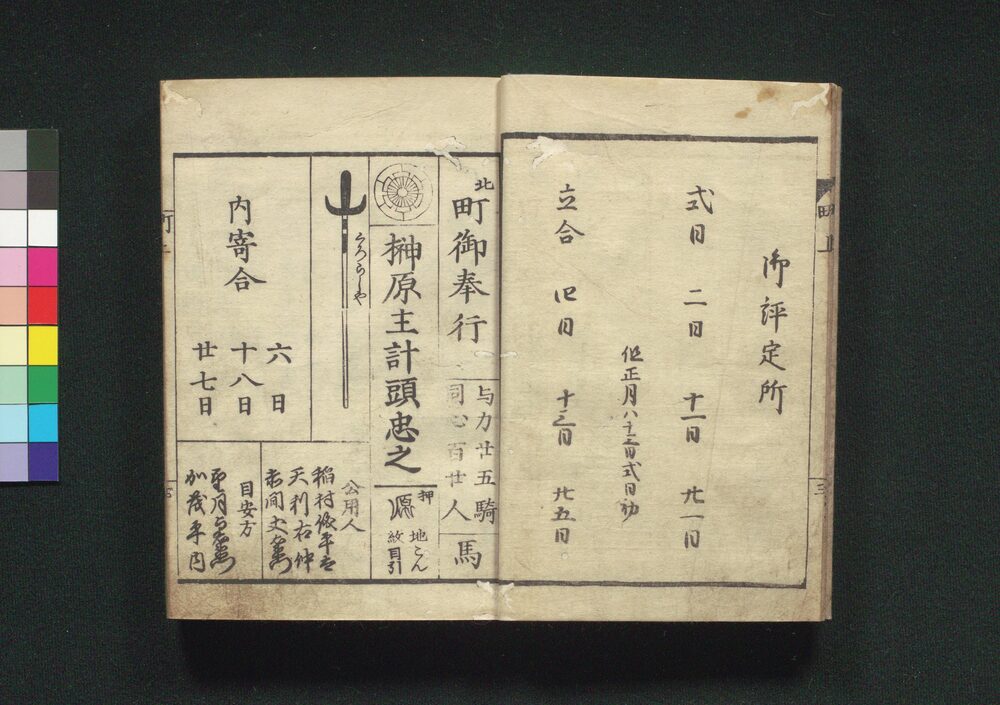 御評定所
式日 二日 十一日 廿一日
但正月八十二日式日初
立合 四日 十三日 廿五日
北
町御奉行
与力廿五騎
同心百廿人
馬
榊原主計頭忠之
押
地こん
紋目引
くろらしや
内寄合
六日
十八日
廿七日
公用人
天利右仲
目安方
加茂平内
町上